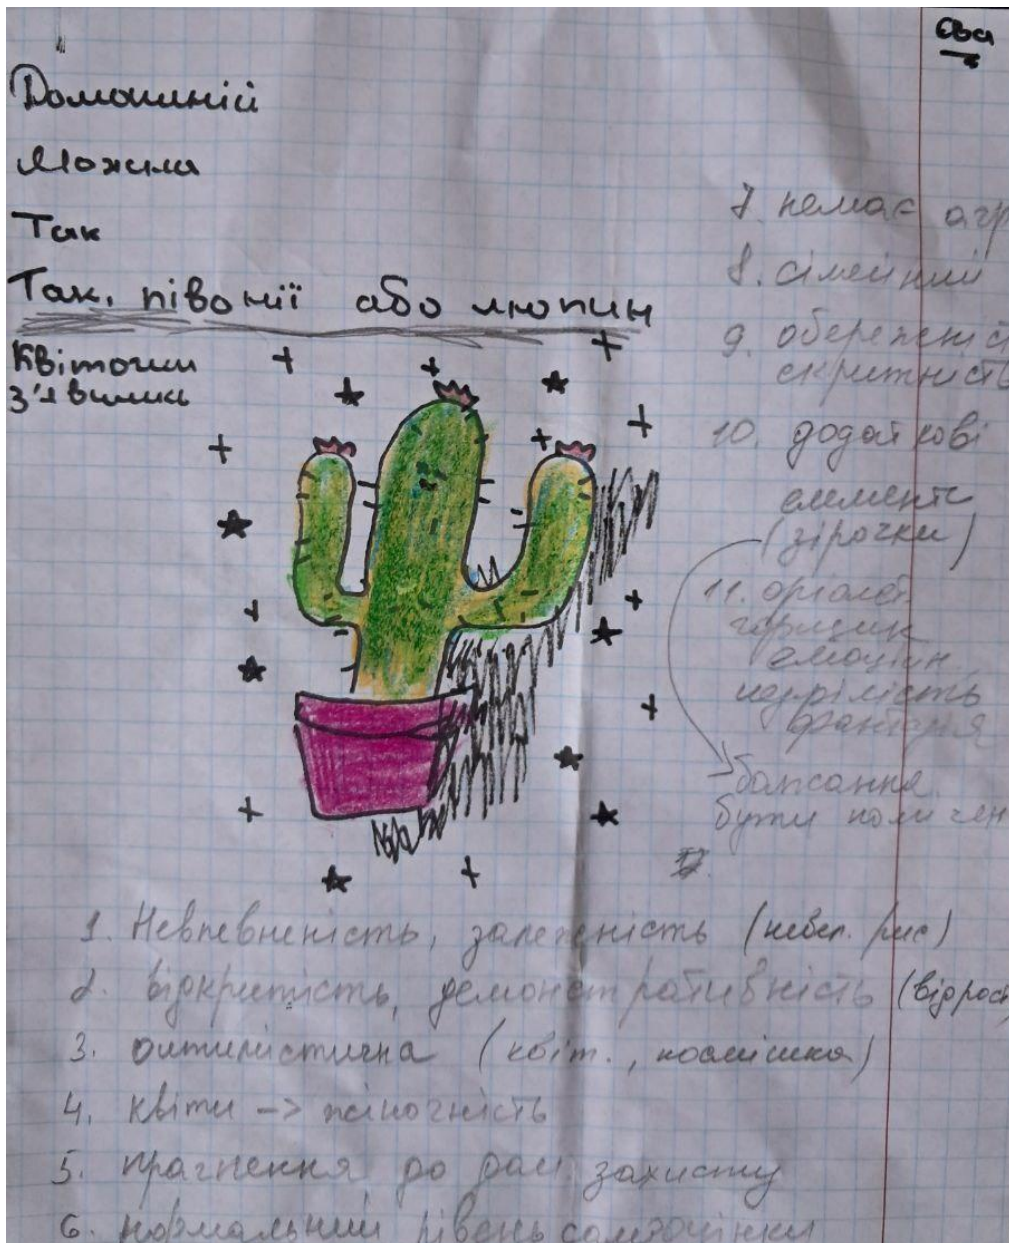 Єва
Домашній
Можна
Так
Так, півонії або люпин
Квіточки
з'явились
7. немає агр
8. сімейний
9. обережніст
скритність
10. додаткові
елементи
(зірочки)
11.
горщик
емоційн
фантазія
бажання
бути помічен
1. Невпевненість, залежність (невел. рис)
2. Відкритість, демонстративність (відрост
3. оптимістична (квіт., посмішка)
4. квіти -> жіночність
5. прагнення до дом. захисту
6. нормальний рівень самооцінки